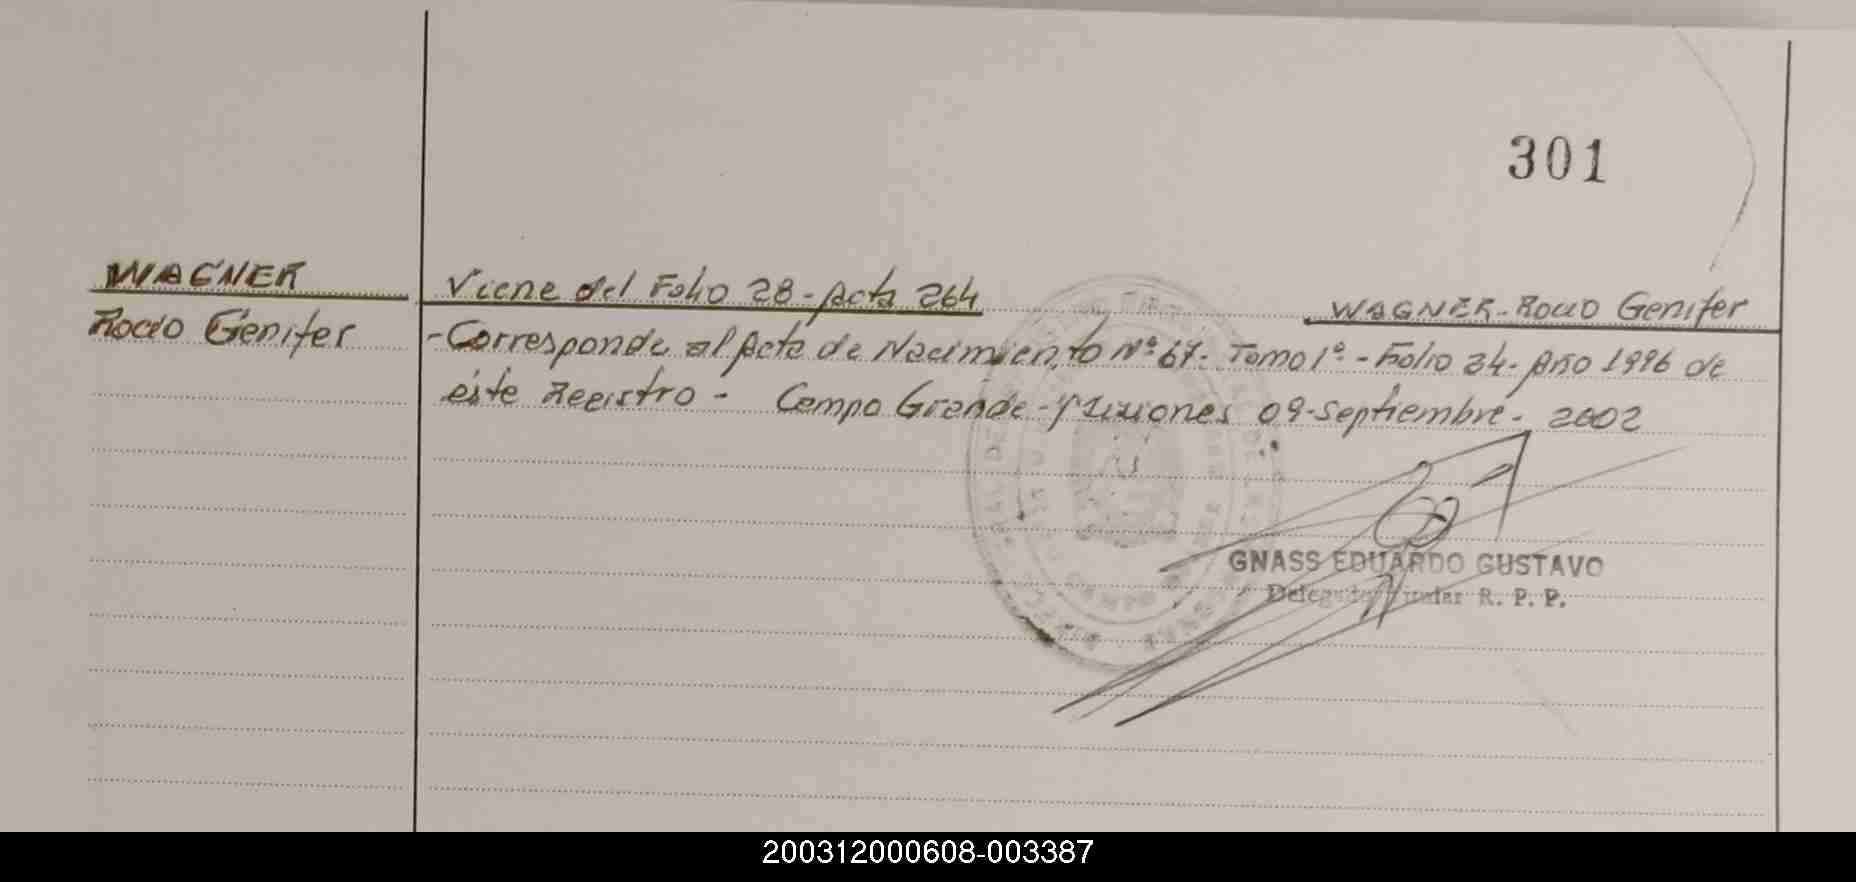 301
WAGNER
Rocio Genifer
Viene del Folio 28 - Acta 264
WAGNER - Rocio Genifer
- Corresponde al Acta de Nacimiento Nº 67 - Tomo 1º - Folio 34 - Año 1996 de
este Registro - Campo Grande - Misiones 09 - Septiembre - 2002
GNASS EDUARDO GUSTAVO
Delegado Titular R. P. P.
200312000608-003387